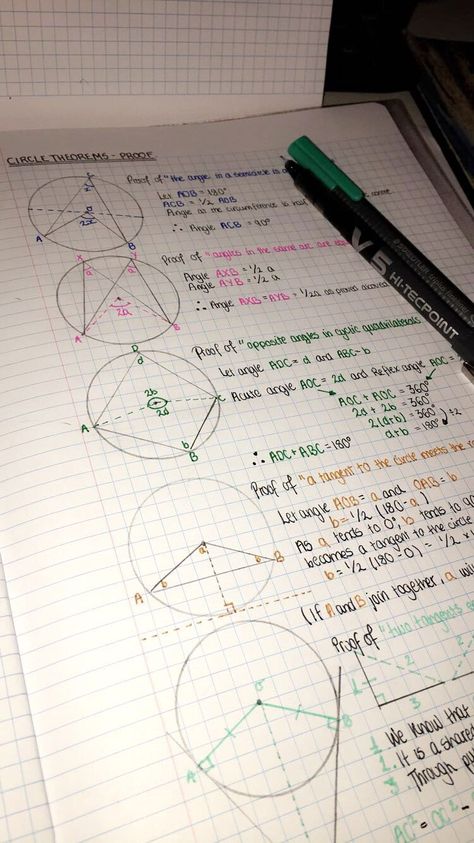 CIRCLE THEOREMS - PROOF
Proof of "the angle in a semicircle is
Let AOB = 180°
ACB = 1/2 AOB
Angle at the circumference is half
∴ Angle ACB = 90°
A
B
Proof of "angles in the same arc are
Angle AXB = 1/2 a
Angle AYB = 1/2 a
∴ Angle AXB = AYB = 1/2a as proved
X
Y
a
a
2a
A
B
Proof of "opposite angles in cyclic quadrilaterals
Let angle ADC = d and ABC = b
Acuse angle AOC = 2d and Reflex angle AOC =
AOC + AOC = 360°
2d + 2b = 360°
2(d+b) = 360°
÷2
d+b = 180°
∴ ADC + ABC = 180°
D
d
2b
2d
C
A
b
B
Proof of "a tangent to the circle meets the
Let angle AOB = a and OAB = b
b = 1/2 (180 - a)
As a tends to 0°, b tends to
becomes a tangent to the circle
b = 1/2 (180 - 0) = 1/2 x
(If A and B join together, a will
a
b
b
A
B
Proof of "two tangents
2
2
1
3
1. We know that
2. It is a shared
3. Through
AC² = OC² -
O
A
B
V5
HI-TECPOINT